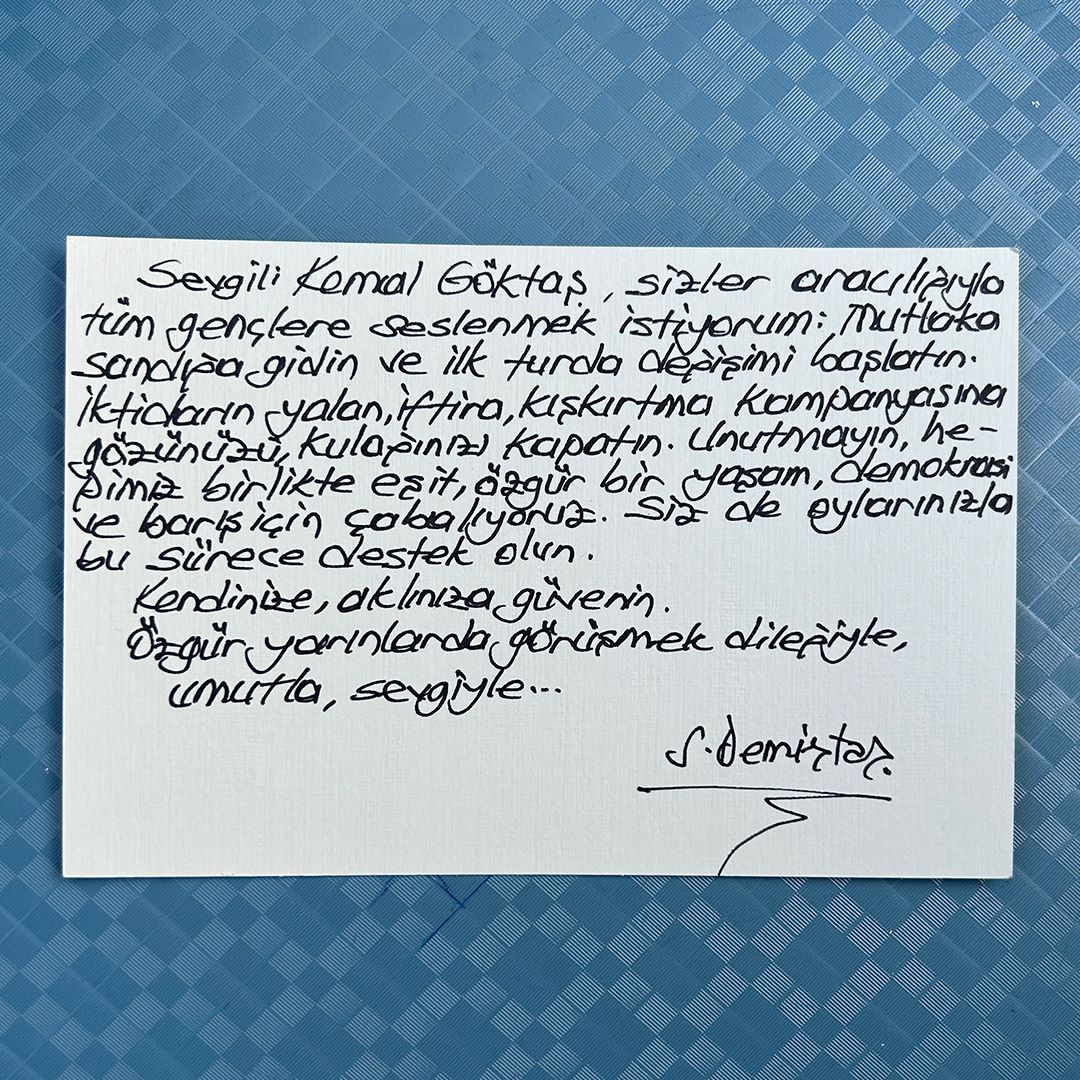 Sevgili Kemal Göktaş, sizler aracılığıyla
tüm gençlere seslenmek istiyorum: Mutlaka
sandığa gidin ve ilk turda değişimi başlatın.
İktidarın yalan, iftira, kışkırtma kampanyasına
gözünüzü, kulağınızı kapatın. Unutmayın, he-
pimiz birlikte eşit, özgür bir yaşam, demokrasi
ve barış için çabalıyoruz. Siz de oylarınızla
bu sürece destek olun.
Kendinize, aklınıza güvenin.
Özgür yarınlarda görüşmek dileğiyle,
umutla, sevgiyle...
S. Demirtaş.